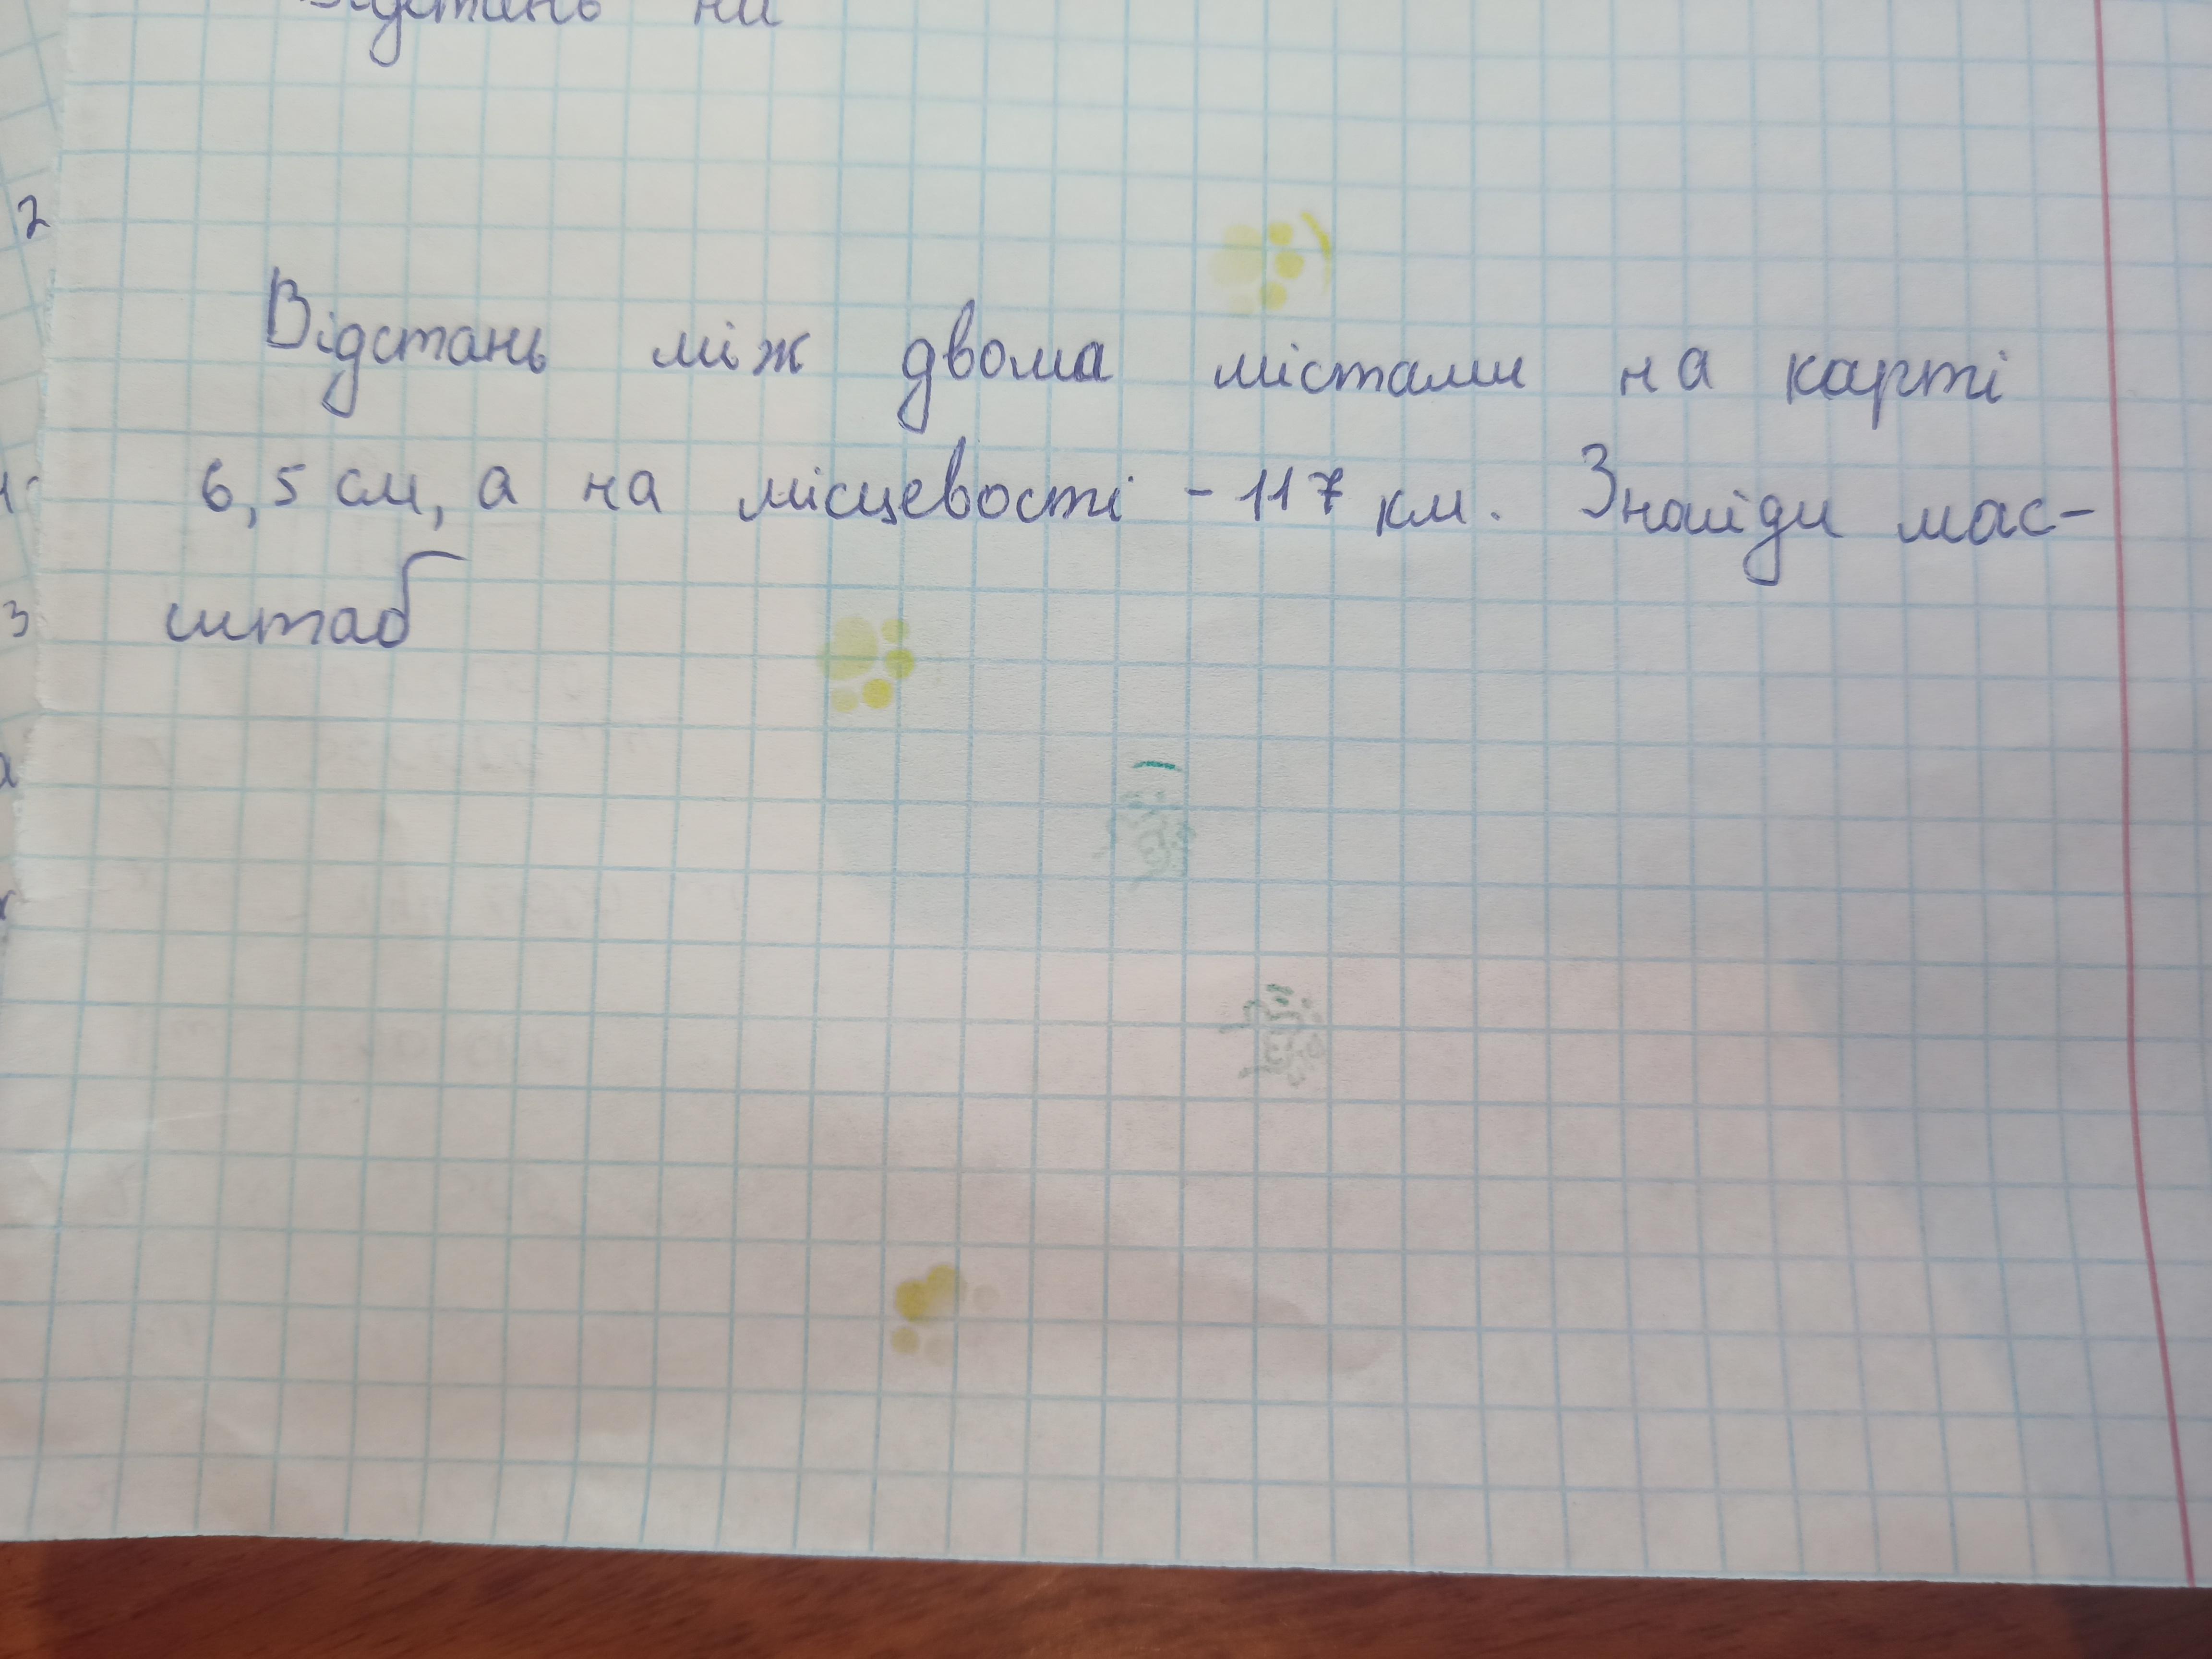 Відстань на
2
Відстань між двома містами на карті
6,5 см, а на місцевості - 117 км. Знайди мас-
3
штаб